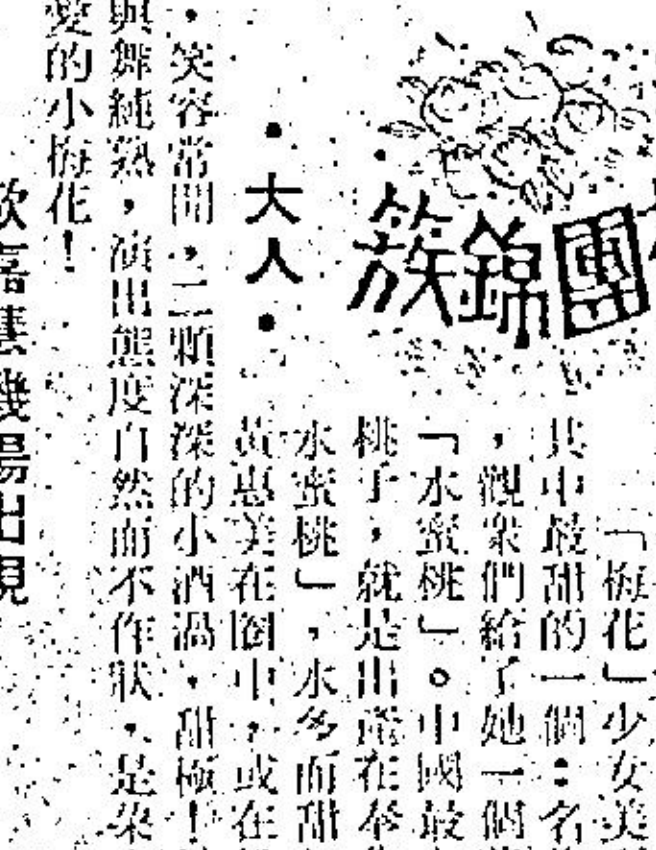 團錦簇
•大人•
「梅花」少女美
其中最甜的一個：名
，觀衆們給了她一個
「水蜜桃」。中國最
桃子，就是出產在奉
水蜜桃」，水多而甜
黃惠美在團中，或在
，笑容常開，二顆深深的小酒渦，甜極！
與舞純熟，演出態度自然而不作狀，是朵
愛的小梅花！
歌嘉慧機場出現